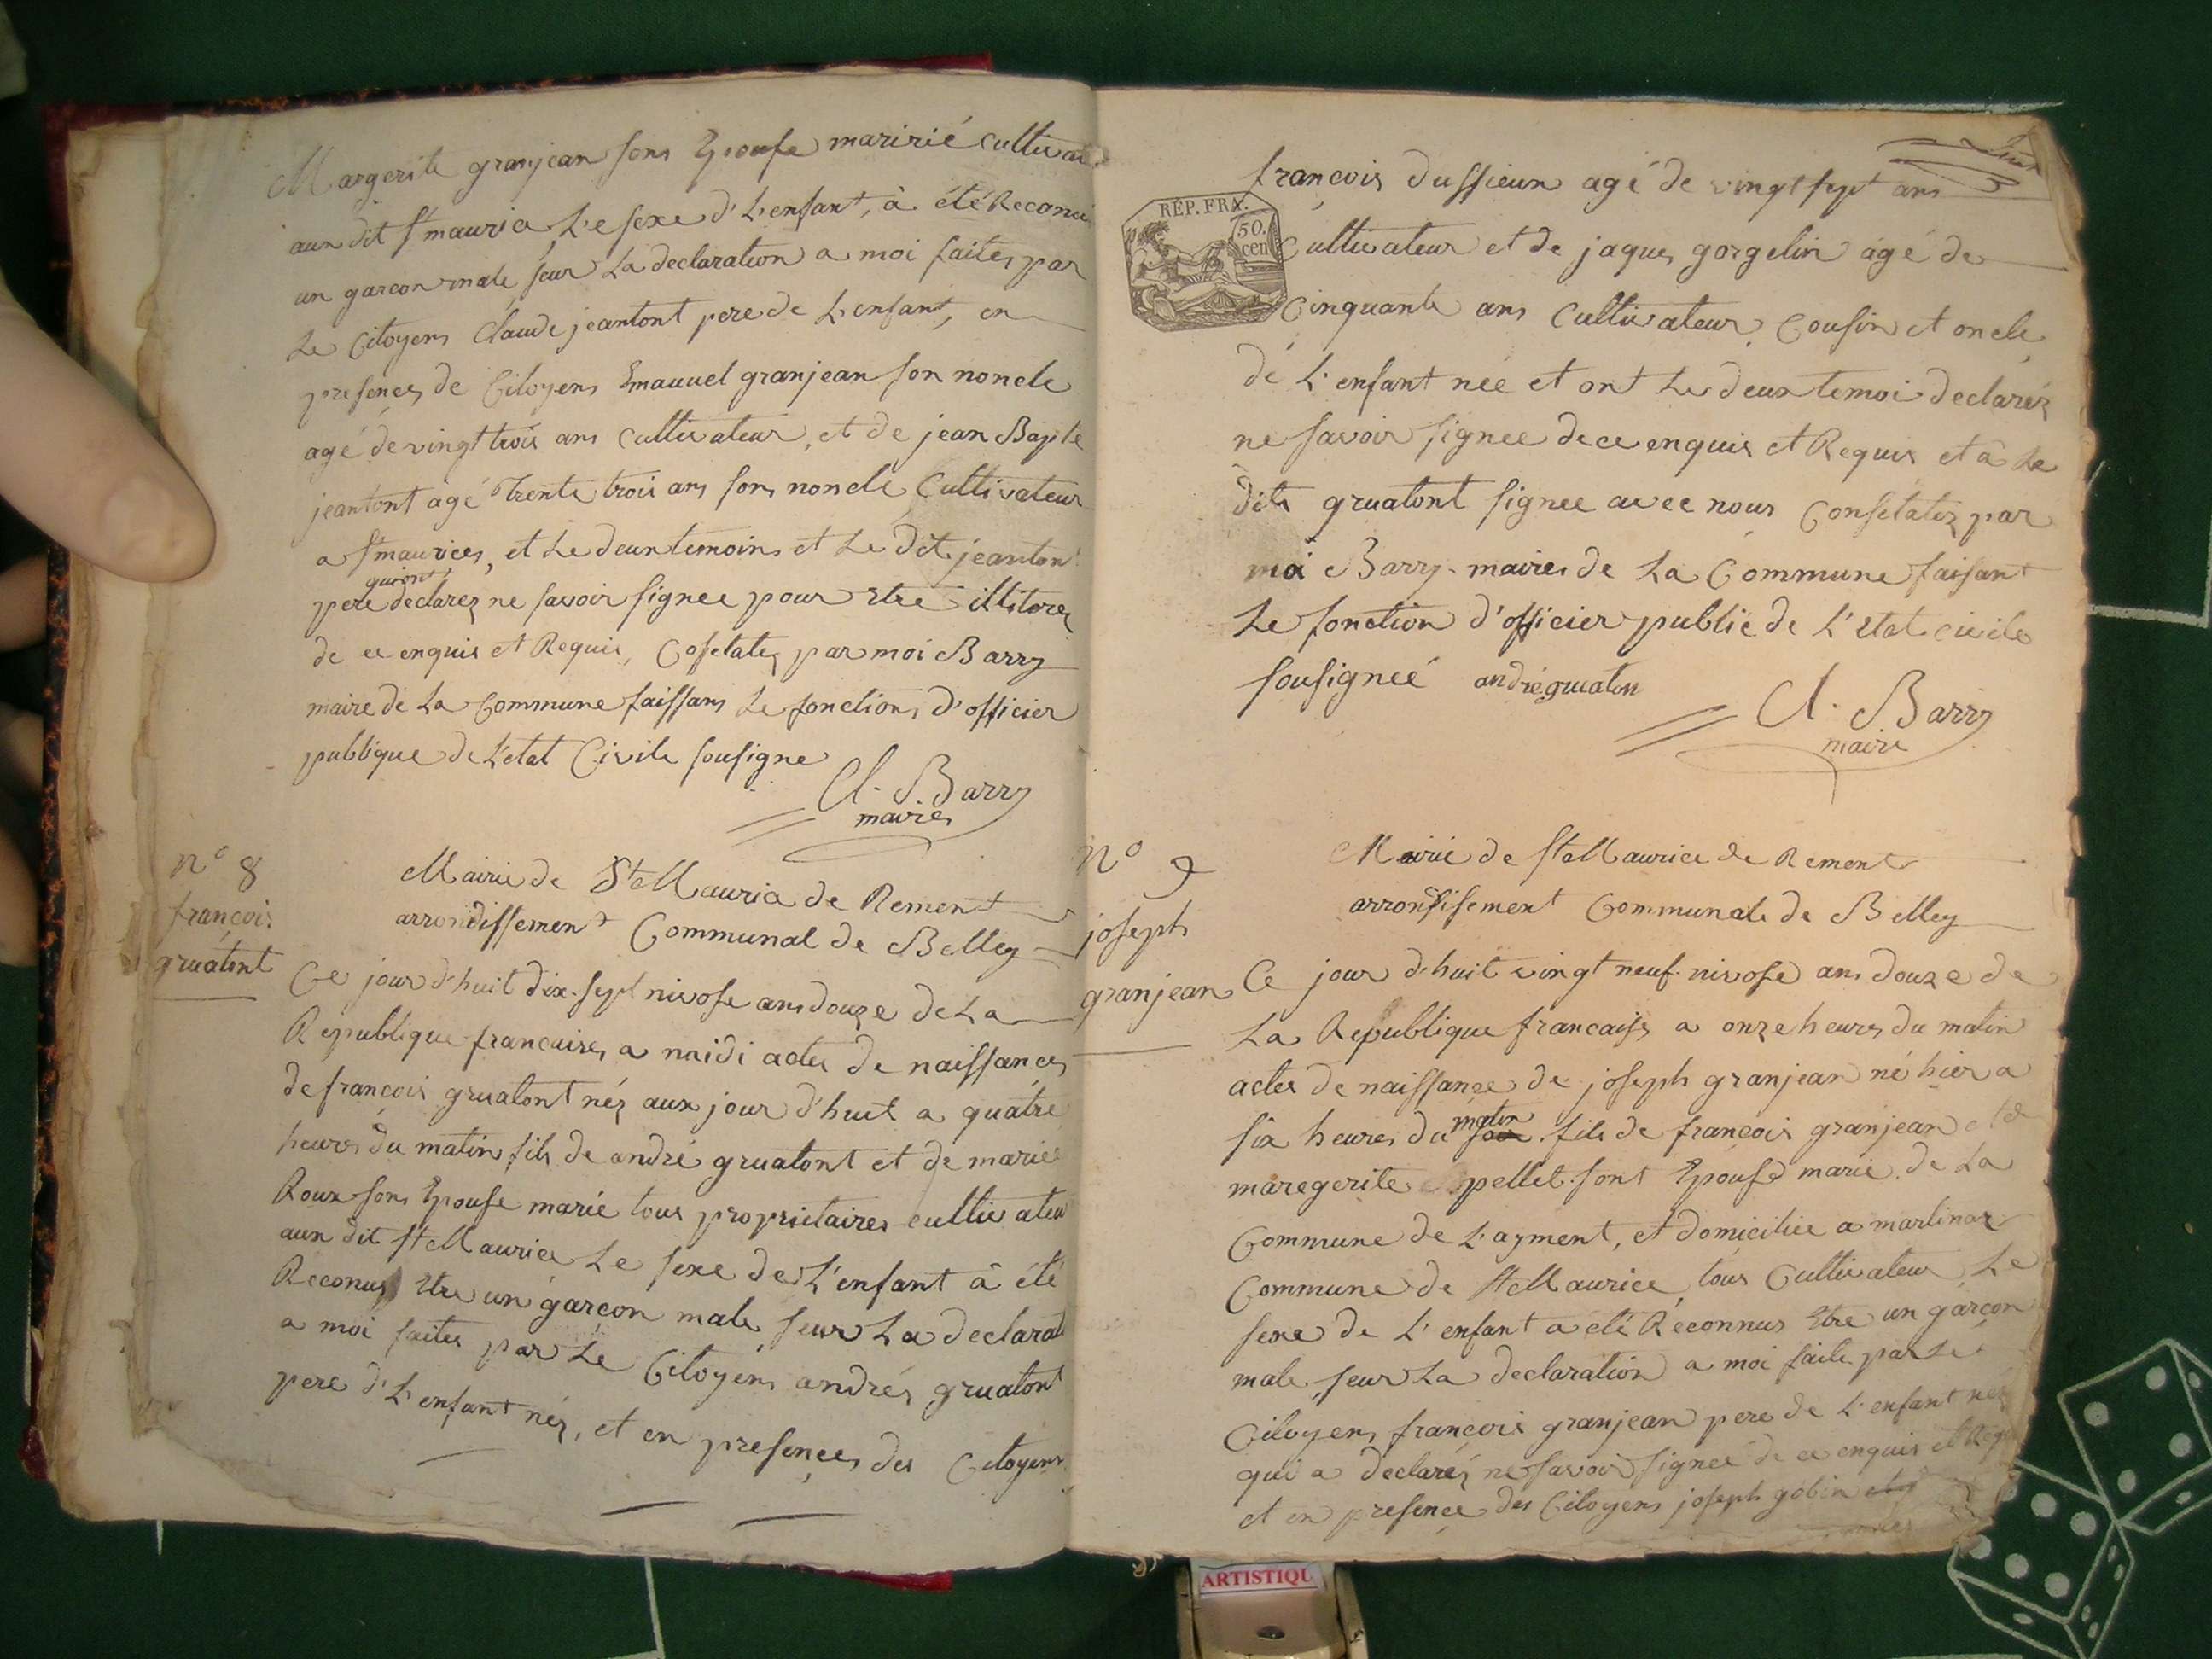 Margerite granjean sons Epouse maririé Cultivat
aux dit St maurice Le sexe d'L'enfant, à été Reconu
un garcon male seur La declaration a moi faites par
Le Citoyens Claude jeantont pere de L'enfant, en
presences de Citoyens Emanuel granjean son noncle
agé de vingt trois ans Cultivateur, et de jean Bapte
jeantont agé Trente trois ans sons noncle Cultivateur
a St maurices, et Le deux temoins et Le dit jeanton
quiont
pere declarez ne savoir signee pour Etre illiterez
de ce enquis et Requis, Cosctatez par moi Barry
maire de La Commune faissans Le fonctions d'officier
publique de L'etat Civile sousigne
Cl. Barry
maires
n° 8
francois
gruatont
Mairie de St Maurice de Rement
arrondissement Communal de Belley
Ce jour d'huit dix-sept nivose ans douze de La
Republique francaises a midi actes de naissances
de francois gruatont néz aux jour d'huit a quatre
heures du matin fils de andré gruatont et de marie
Roux sons Epouse marié tous proprietaires cultivateu
aux dit St Maurice Le sexe de L'enfant à été
Reconus Etre un garcon male seur La declarat
a moi faites par Le Citoyens andrés gruatont
pere d'L'enfant néz, et en presences des Citoyens
françois dussieux agé de vingt sept ans
RÉP. FRA.
50.
cen
Cultivateur et de jaques gorgelin agé de
Cinquante ans Cultivateur, Cousin et oncle
de L'enfant née et ont Le deux temoi declaréz
ne savoir signee de ce enquis et Requis et à Le
dits gruatont signee avec nous Consctatez par
moi Barry maires de La Commune faisant
Le fonction d'officier public de L'etat civile
sousigneé andré gruaton
Cl. Barry
maire
n° 9
joseph
granjean
Mairie de St Maurice de Rement
arrondisement Communale de Belley
Ce jour d'huit vingt neuf nivose ans douze de
La Republique francaises a onze heures du matin
actes de naissance de joseph granjean né hier a
matin
six heures du soir fils de francois granjean et de
maregerite pellet sont Epouse marie de La
Commune de L'ayment, et domiciliée a martinaz
Commune de St Maurice, tous Cultivateur Le
sexe de L'enfant a eté Reconnus Etre un garcon
male, seur La declaration a moi faite par Le
Citoyens francois granjean pere de L'enfant néz
qui a declaréz ne savoir signeé de ce enquis et Req
et en presence des Citoyens joseph gobin
ARTISTIQU